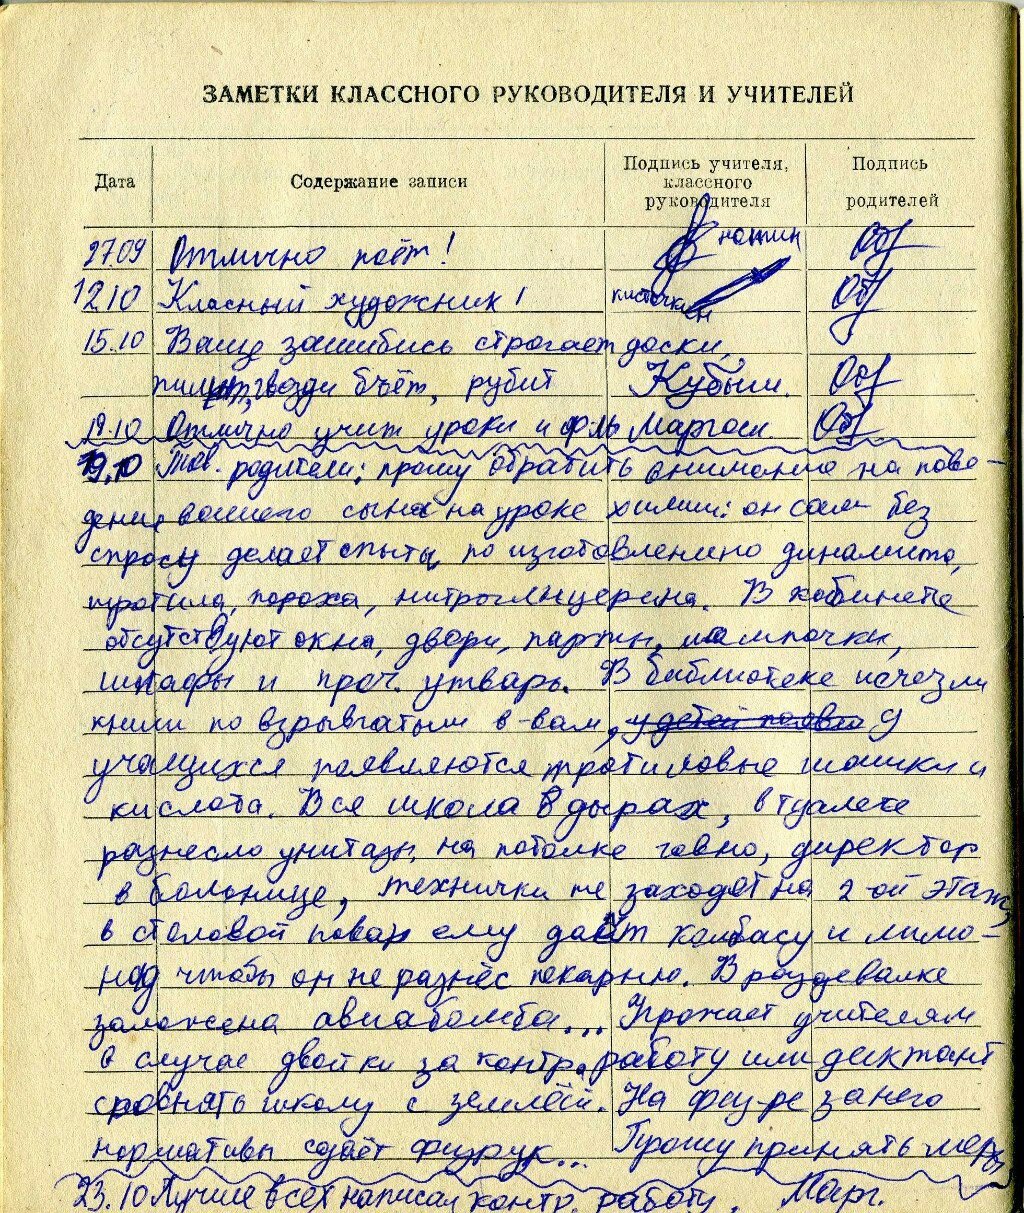 ЗАМЕТКИ КЛАССНОГО РУКОВОДИТЕЛЯ И УЧИТЕЛЕЙ
Дата Содержание записи Подпись учителя, классного руководителя Подпись родителей
27.09 Отлично поёт! нотин
12.10 Класный художник! кисточкин
15.10 Ваще зашибись строгает доски,
пилит, гвозди бьёт, рубит Кубым.
19.10 Отлично учит уроки и Маргоси
19.10 Тов. родители: прошу обратить внимание на пове-
дение вашего сына на уроке химии: он сам без
спросу делает опыты по изготовлению динамита,
тротила, пороха, нитроглицерина. В кабинете
отсутствуют окна, двери, парты, лампочки,
шкафы и проч. утварь. В библиотеке исчезли
книги по взрывчатым в-вам, у детей У
учащихся появляются тротиловые шашки и
кислота. Вся школа в дырах, в туалете
разнесло унитазы, на потолке говно, директор
в больнице, технички не заходят на 2-ой этаж,
в столовой повар ему даёт колбасу и лимо-
над чтобы он не разнёс пекарню. В раздевалке
заложена авиабомба... Угрожает учителям
в случае двойки за контр. работу или диктант
сровнять школу с землёй. На физ-ре за него
нормативы сдаёт физрук... Прошу принять меры
23.10 Лучше всех написал контр. работу. Марг.